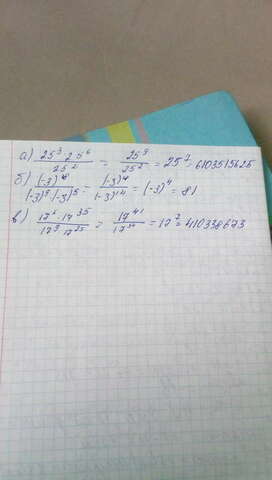 а) 25³·25⁶ / 25² = 25⁹ / 25² = 25⁷ = 6103515625
б) (-3)¹⁸ / (-3)⁹·(-3)⁵ = (-3)¹⁸ / (-3)¹⁴ = (-3)⁴ = 81
в) 17⁶·17³⁵ / 17⁹·17²⁵ = 17⁴¹ / 17³⁴ = 17⁷ = 410338673